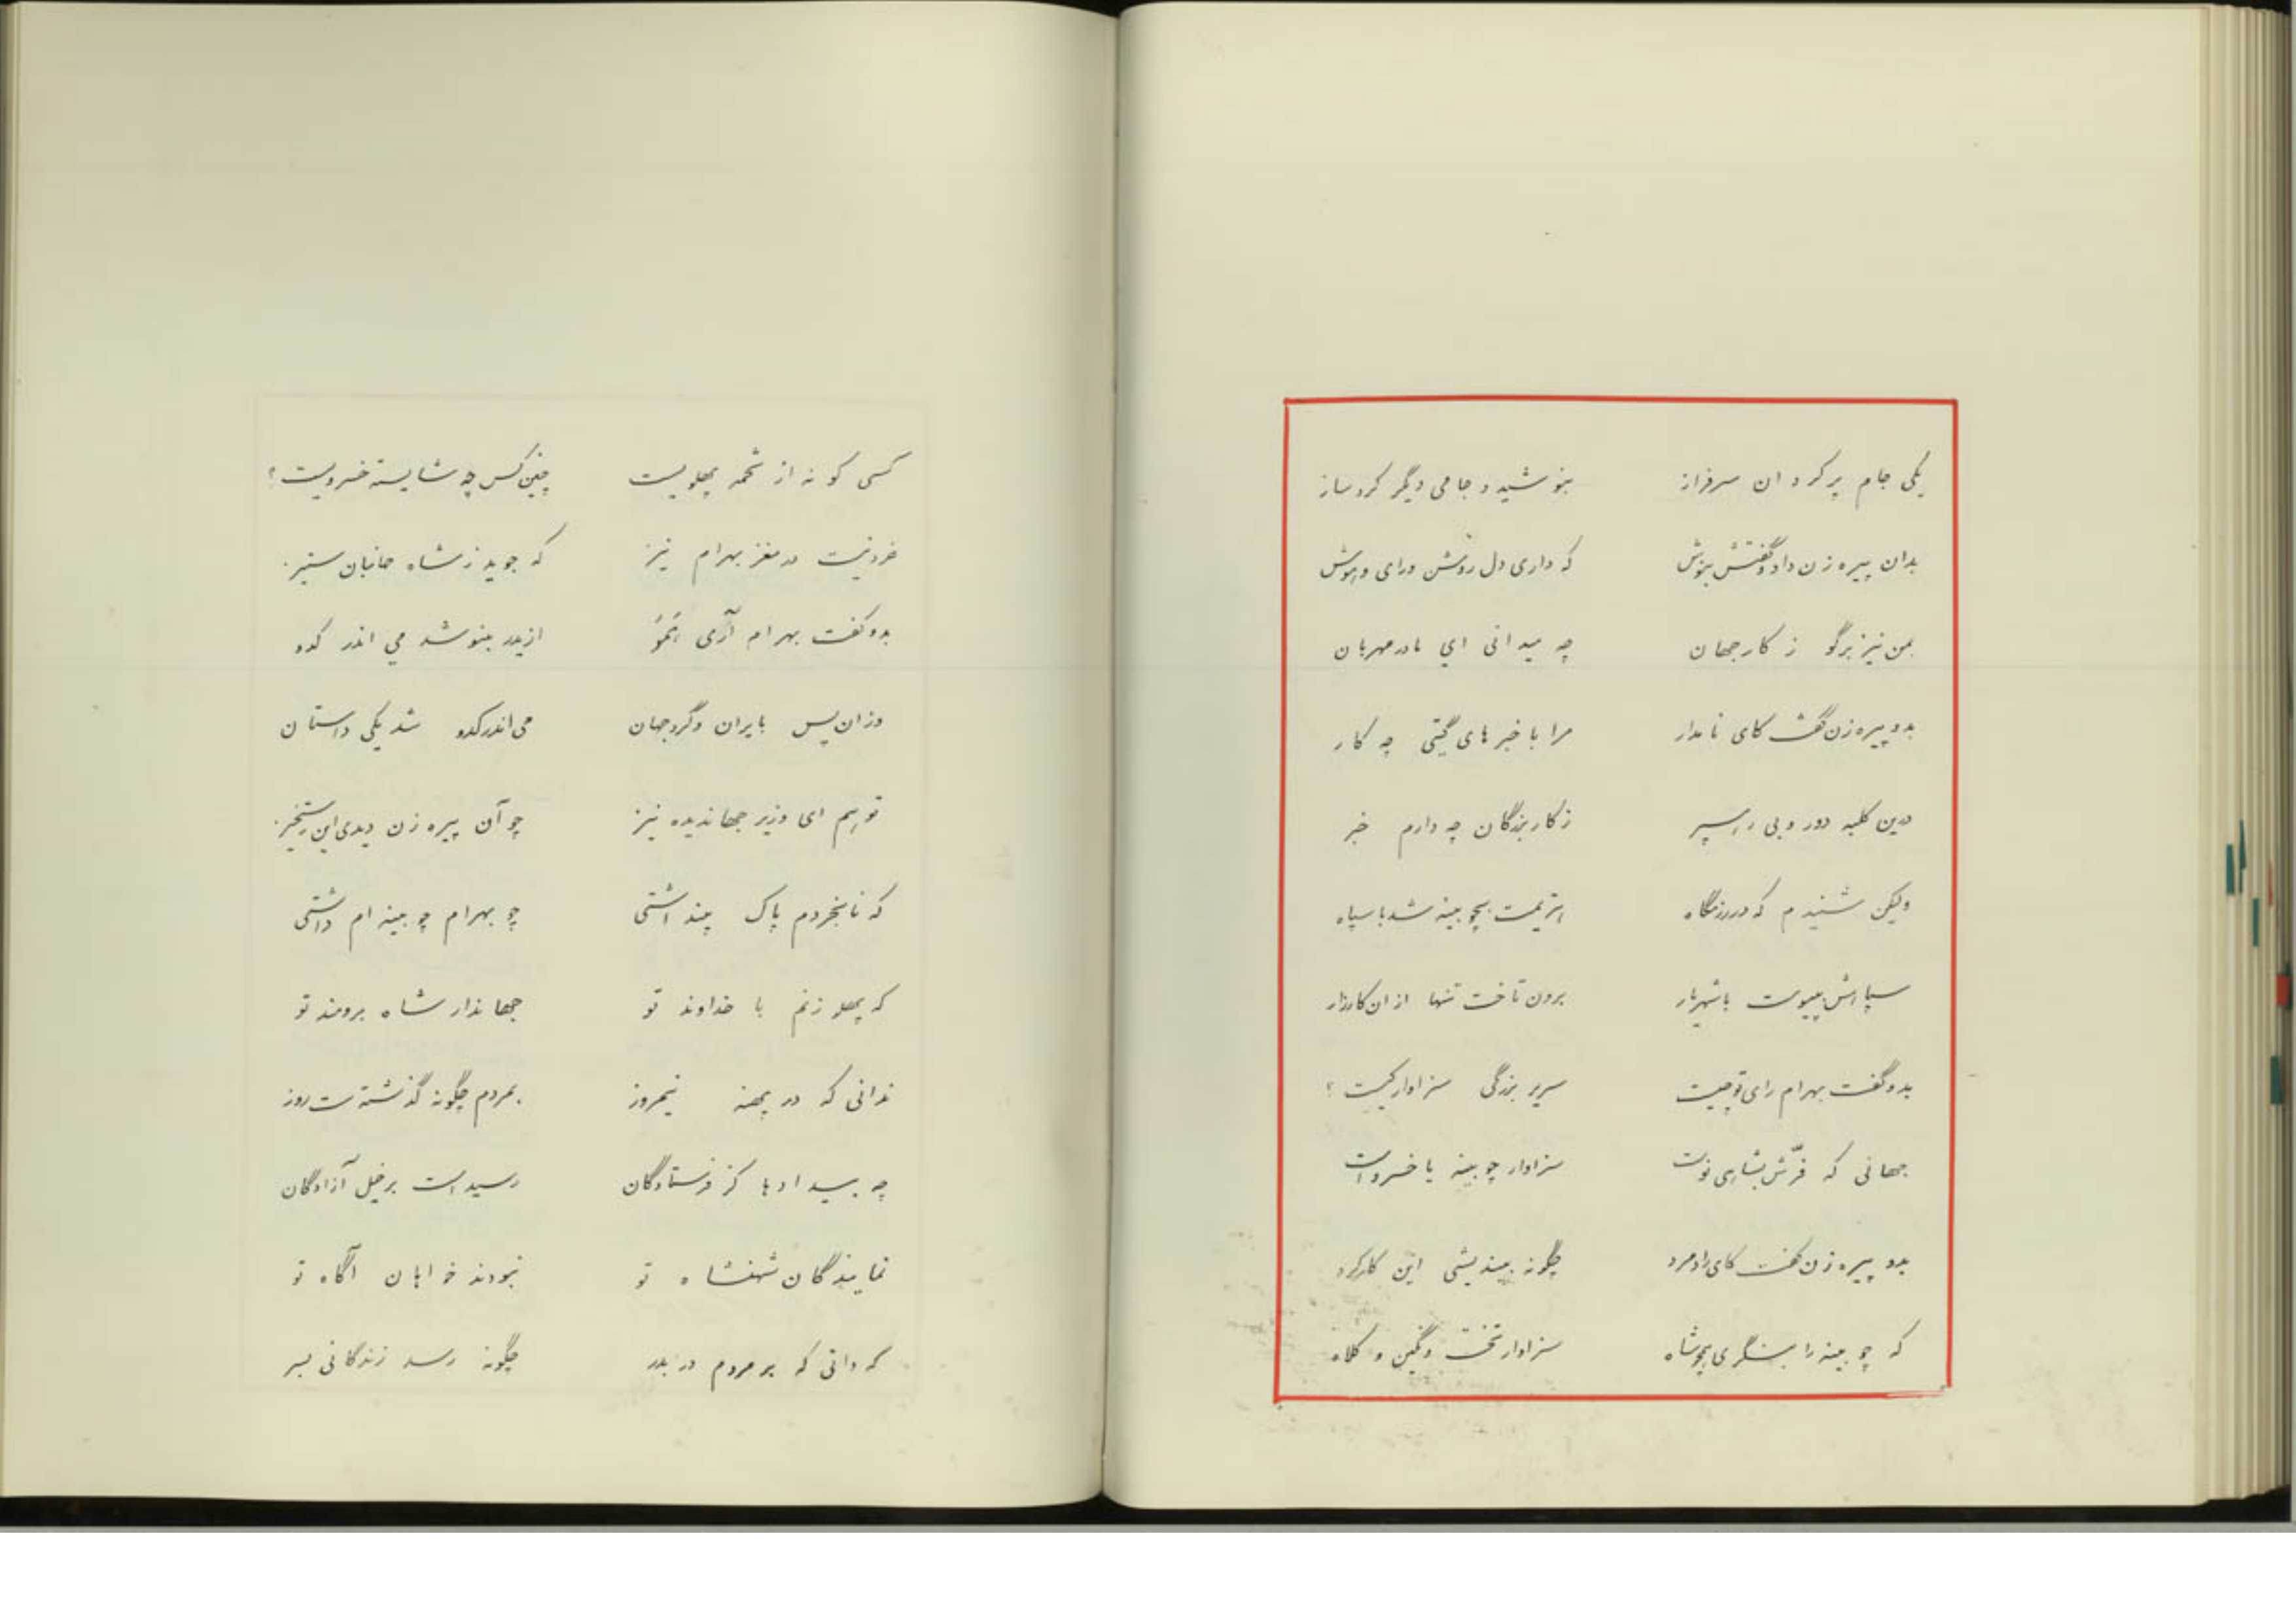 یکی جام پر کرد ان سرفراز بنوشید و جامی دیگر کرد ساز
بدان پیره زن داد و گفتش بنوش که داری دل روشن و رای و هوش
بمن نیز برگو ز کار جهان چه میدانی ای مادر مهربان
بدو پیره زن گفت کای نامدار مرا با خبرهای گیتی چه کار
درین کلبه دور و بی راهبر ز کار بزرگان چه دارم خبر
ولیکن شنیدم که در رزمگاه هزیمت بچوبینه شد با سپاه
سپاهش بپیوست با شهریار برون تاخت تنها از ان کارزار
بدو گفت بهرام رای تو چیست سریر بزرگی سزاوار کیست ؟
جهانی که فرّش بشاهی نوست سزاوار چوبینه یا خسرو است
بدو پیره زن گفت کای رادمرد چگونه بیندیشی این کارکرد
که چوبینه را بنگری همچو شاه سزاوار تخت و نگین و کلاه
کسی کو نه از تخمه پهلویست چنین کس چه شایسته خسرویست ؟
خرد نیست در مغز بهرام نیز که جوید ز شاه ستیز
بدو گفت بهرام آری همو ازیدر بنوشد می اندر کدو
وزان پس بایران و گرد جهان می اندر کدو شد یکی داستان
تو هم ای وزیر جهاندیده نیز چو آن پیره زن دیدی این رستخیز
که نابخردم پاک پنداشتی چو بهرام چوبینه ام داشتی
که پهلو زنم با خداوند تو جهاندار شاه برومند تو
ندانی که در پهنه نیمروز بمردم چگونه گذشته ست روز
چه بیدادها کز فرستادگان رسید است بر خیل آزادگان
نمایندگان شهنشاه تو نبودند خواهان آگاه تو
که دانی که بر مردم در بدر چگونه رسد زندگانی بسر